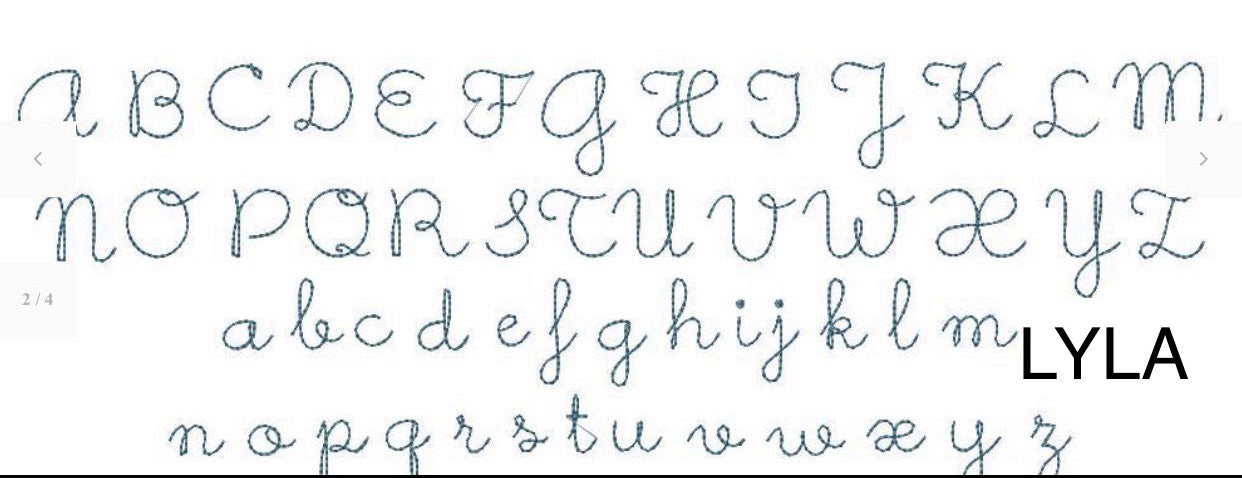 A B C D E F G H I J K L M
N O P Q R S T U V W X Y Z
2 / 4
a b c d e f g h i j k l m
LYLA
n o p q r s t u v w x y z